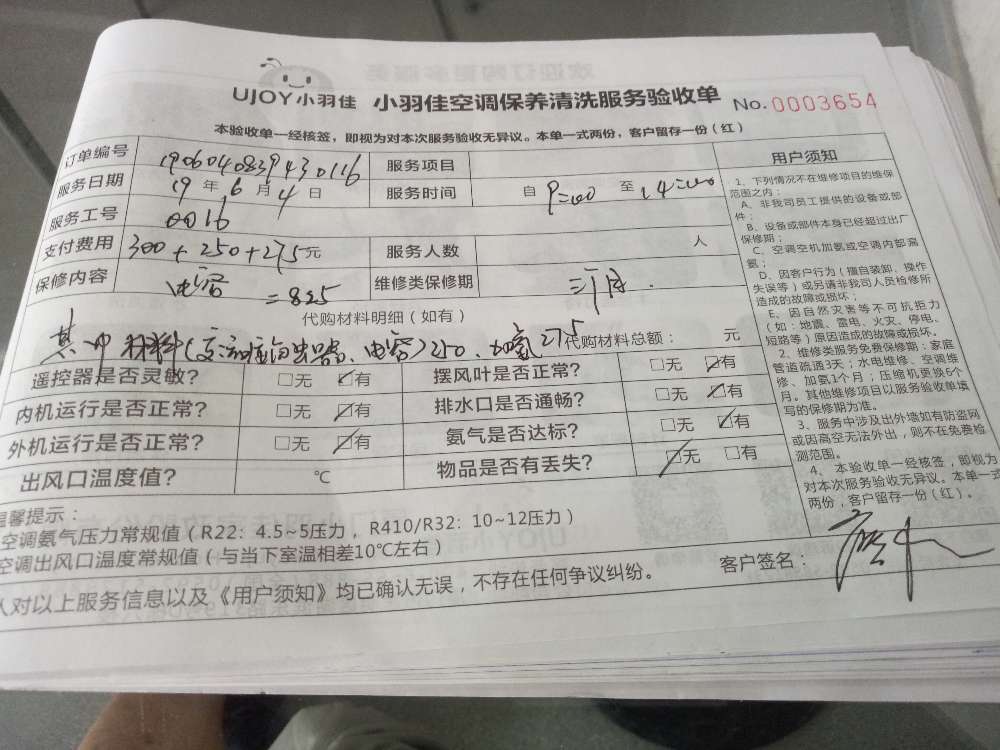 UJOY小羽佳 小羽佳空调保养清洗服务验收单 No.0003654
本验收单一经核签，即视为对本次服务验收无异议。本单一式两份，客户留存一份（红）
订单编号 1906040839430116 服务项目
服务日期 19年6月4日 服务时间 自 9:00 至 14:00
服务工号 0016
支付费用 300+250+275元 服务人数 人
保修内容 电容 =825 维修类保修期 三个月.
代购材料明细（如有）
其中材料( 电容)250、加氨275 代购材料总额： 元
遥控器是否灵敏？ □无 ☑有 摆风叶是否正常？ □无 ☑有
内机运行是否正常？ □无 ☑有 排水口是否通畅？ □无 ☑有
外机运行是否正常？ □无 ☑有 氨气是否达标？ □无 ☑有
出风口温度值？ ℃ 物品是否有丢失？ ☑无 □有
温馨提示：
空调氨气压力常规值（R22：4.5~5压力，R410/R32：10~12压力）
空调出风口温度常规值（与当下室温相差10℃左右）
人对以上服务信息以及《用户须知》均已确认无误，不存在任何争议纠纷。
客户签名：
用户须知
1、下列情况不在维修项目的维保
范围之内：
A、非我司员工提供的设备或部
件；
B、设备或部件本身已经超过出厂
保修期；
C、空调空机加氨或空调内部漏
氨；
D、因客户行为（擅自装卸、操作
失误等）或另请非我司人员检修所
造成的故障或损坏；
E、因自然灾害等不可抗拒力
（如：地震、雷电、火灾、停电、
短路等）原因造成的故障或损坏。
2、维修类服务免费保修期：家庭
管道疏通3天；水电维修、空调维
修、加氨1个月；压缩机更换6个
月。其他维修项目以服务验收单填
写的保修期为准。
3、服务中涉及出外墙如有防盗网
或因高空无法外出，则不在免费检
测范围。
4、本验收单一经核签，即视为
对本次服务验收无异议。本单一式
两份，客户留存一份（红）。